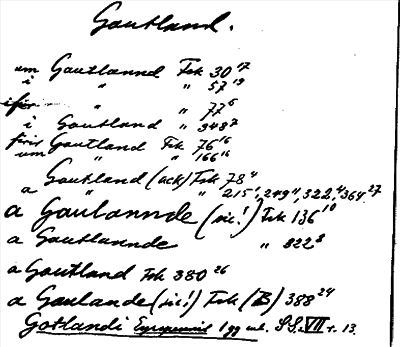 Gautland.
um Gautlannd Fsk 30¹⁷
i " " 57¹⁹
" " 77⁶
i Gautland " 348⁷
firir Gautland Fsk 76¹⁶
um " " 166¹⁶
Gautland (ack) Fsk 78⁴
a " " 215¹, 249⁴, 322,⁴ 364.²⁷
a Gaulannde (sic!) Fsk 136¹⁰
a Gautlannde " 322⁸
a Gautland Fsk 380²⁶
a Gaulande (sic!) Fsk (B) 388²⁴
Gotlandi 199 SS. VII 13.